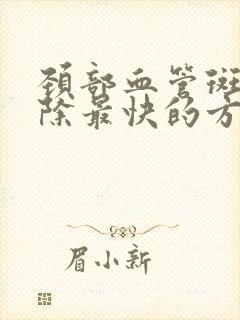 颈部血管斑
除最快的方
眉小新